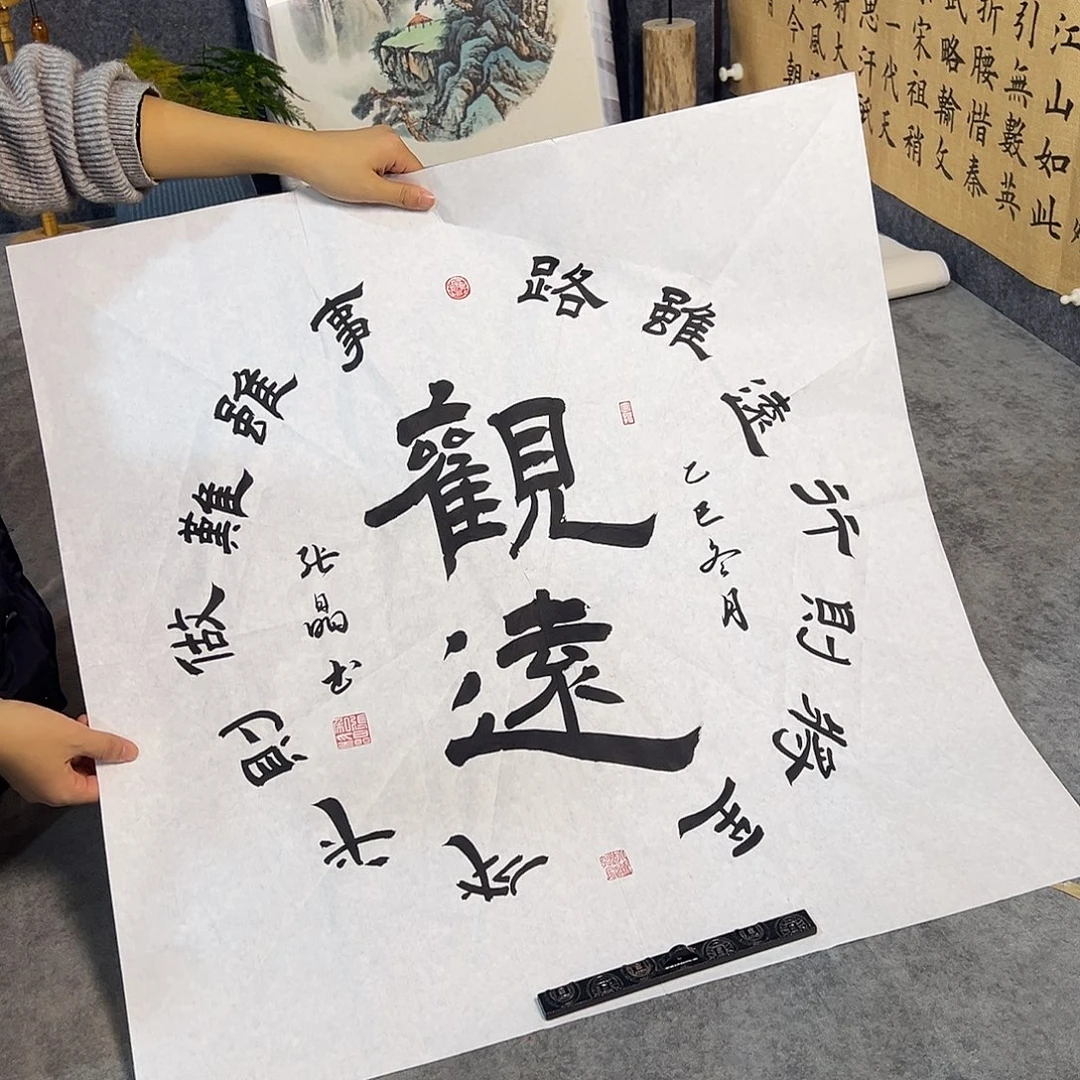 觀遠
路雖遠行則將至
事雖難做則必成
乙巳冬月
张晶书
江山如此
引無數英
折腰惜秦
武略輸文
宋祖稍
一代天
思汗祇
射大
數風
今朝
月